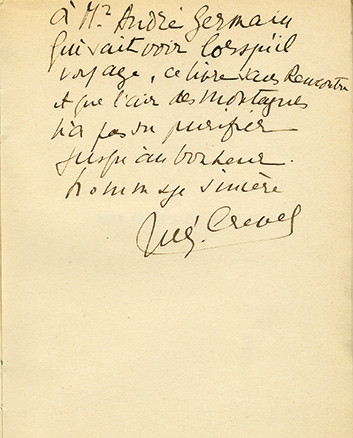 à Mr André Germain
qui sait voir lorsqu'il
voyage, ce livre sans Rencontre
et que l'air des Montagnes
n'a pas su purifier
jusqu'au bonheur.
hommage sincère
René Crevel